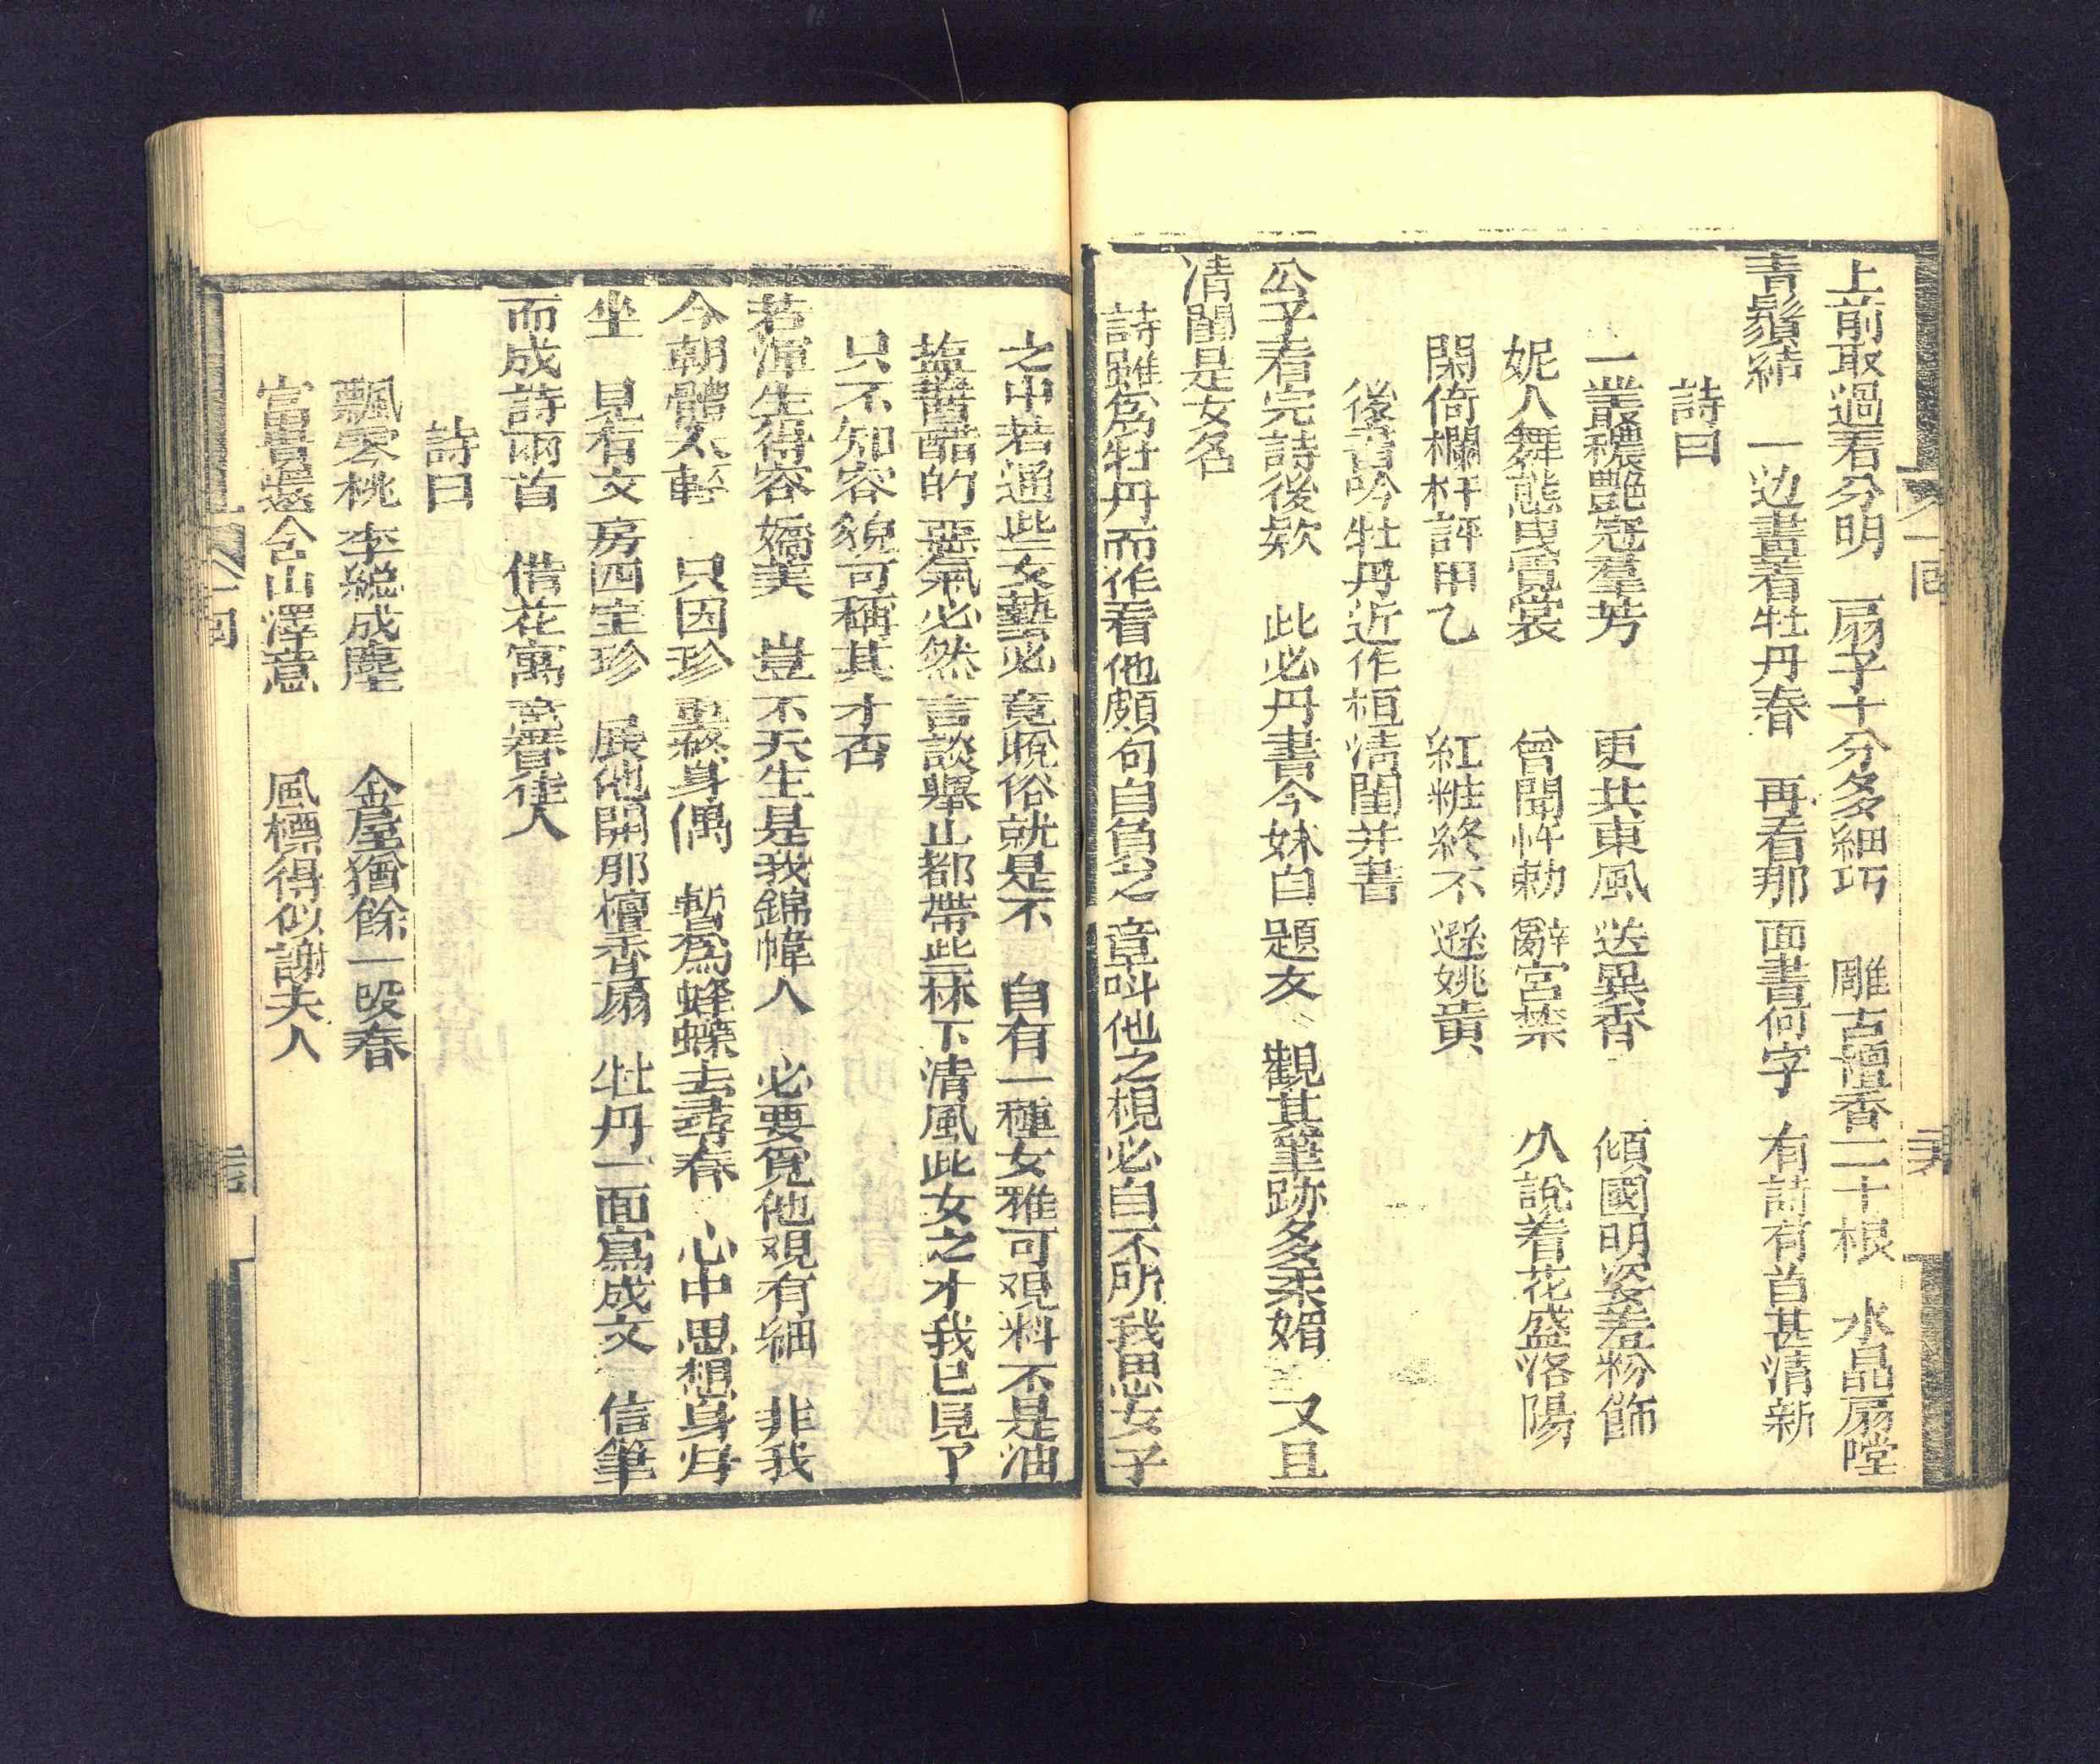 上前取過看分明　扇子十分多細巧　雕古檀香二十根　水晶扇𨫤
青鬚結　一边畫著牡丹春　再看那面書何字　有詩有首甚清新
詩曰
一叢穠艷冠羣芳　更共東風送異香　傾國明姿羞粉飾
妮人舞態曳霓裳　曾聞忤勅辭宮禁　久說着花盛洛陽
閑倚欄杆評甲乙　紅粧終不遜姚黃
後書吟牡丹近作桓清閨并書
公子看完詩後欵　此必丹書令妹自題友　觀其筆跡多柔媚　又且
清閨是女名
詩雖為牡丹而作看他頗句自負之章叫他之梘必自不所我思女子
之中若通些女藝必竟脫俗就是不　自有一種女雅可观料不是油
鹽醬醋的惡氣必然言談舉止都帶些林下清風此女之才我已見了
只不知容貌可稱其才否
若渾生得容嬌美　豈不天生是我錦幃人　必要覓他观有細　非我
今朝體太輕　只因珍重終身偶　暫為蜂蝶去尋春　心中思想身归
坐　見有文房四宝珍　展他開那檀香扇　牡丹一面寫成文　信筆
而成詩兩首　借花寓意贊佳人
詩曰
飄零桃李総成塵　金屋猶餘一段春
富貴還含山澤意　風標得似謝夫人